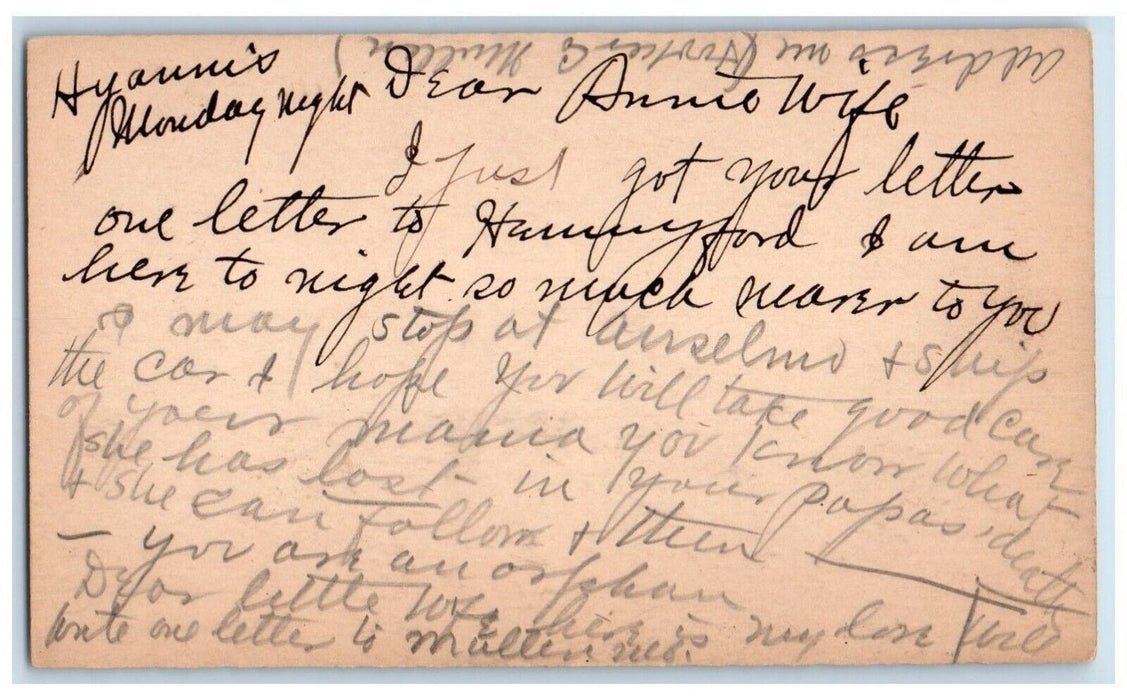 Address me (Hooker Co Mullen)
Hyannis
Monday night Dear Annie Wife
I just got your letter
one letter to Hemmyford I am
here to night so much nearer to you
I may stop at Anselmo & ship
the car & hope you will take good care
of your mama you know what
she has lost in your papas death
& she can follow & then
— you are an orphan
Dear little wife here is my love Will
write one letter to Mullen Neb.